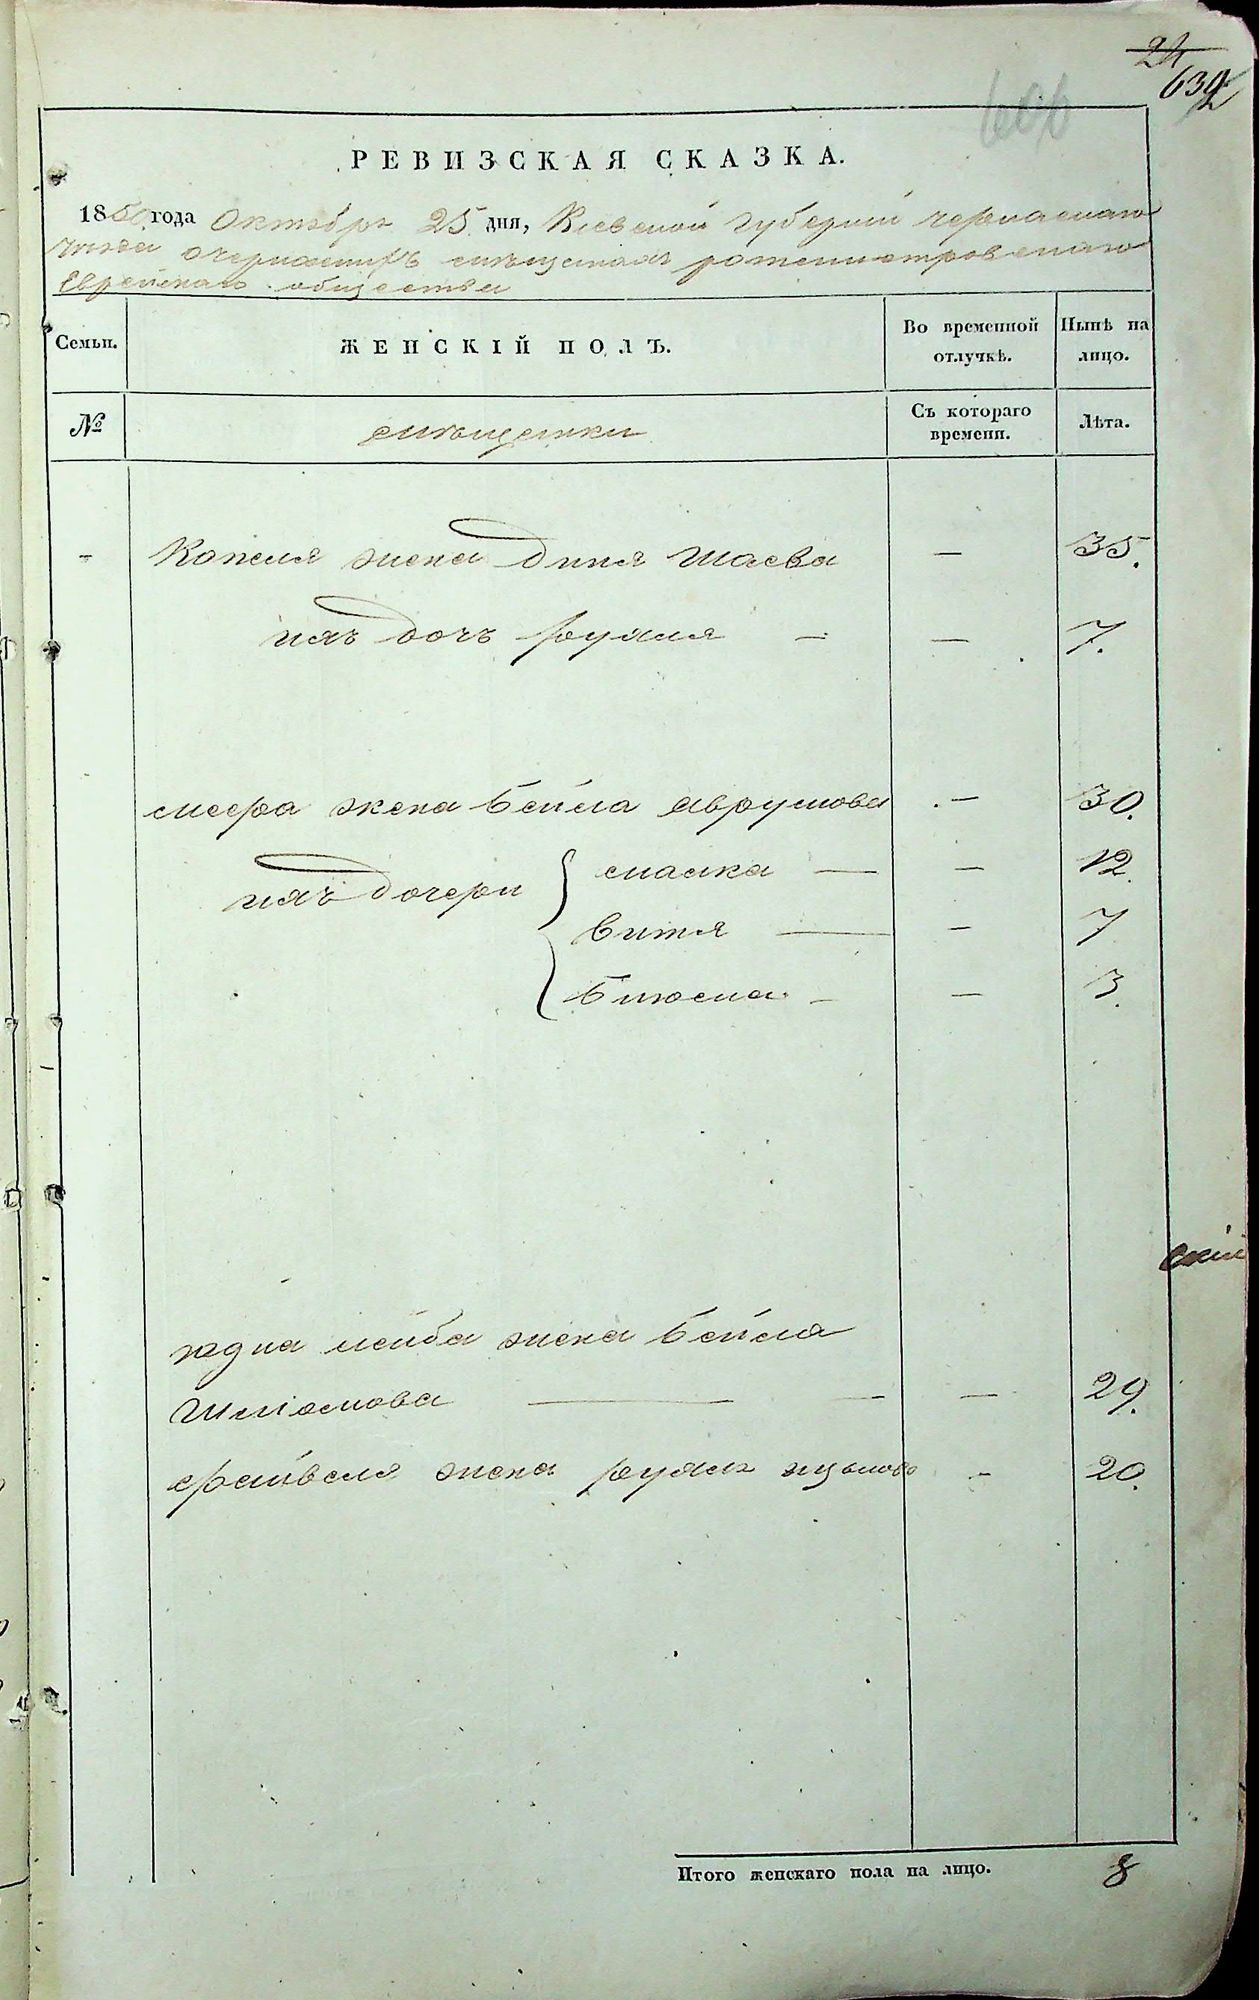 24
639
606
РЕВИЗСКАЯ СКАЗКА.
1850 года Октября 25 дня, Киевской губерніи Черкаскаго
уезда о черкаскихъ мещанахъ ротмистровскаго
Еврейскаго общества
Семьи. ЖЕНСКІЙ ПОЛЪ. Во временной отлучкѣ. Нынѣ на лицо.
№ мещанки Съ котораго времени. Лѣта.
- Копеля жена Диня Шаева — 35.
ихъ дочь Рухля — — 7.
Меера жена Бейла Аврумова — 30.
ихъ дочери { Малка — — 12.
Витя — — 7
Блюма — — 3.
скій
Юдка Лейба жена Бейла
Шлиомова — — — 29.
Файвеля жена Рухля Ицькова — 20.
Итого женскаго пола на лицо. 8